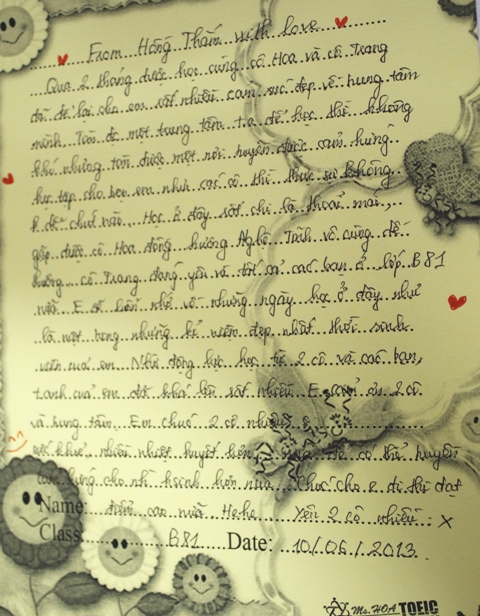 From Hồng Thắm with love
Qua 2 tháng được học cùng cô Hoa và cô Trang
đã để lại cho em rất nhiều cảm xúc đẹp về trung tâm
mình. Tìm đc một trung tâm t.a để học thì không
khó nhưng tìm được một nơi truyền được cảm hứng
học tập cho bọn em như các cô thì thực sự không
dễ chút nào. Học ở đây rất chi là thoải mái,
gặp được cô Hoa đồng hương Nghệ Tĩnh vô cùng dễ
thương, cô Trang đáng yêu và tất cả các bạn ở lớp B81
nữa. E sẽ luôn nhớ về những ngày học ở đây như
là một trong những kỉ niệm đẹp nhất thời sinh
viên của em. Nhờ động lực học từ 2 cô và các bạn,
t.anh của em đã khá lên rất nhiều. E cảm ơn 2 cô
và trung tâm. Em chúc 2 cô nhiều
sức khoẻ, nhiều nhiệt huyết hơn nữa để có thể truyền
cảm hứng cho nh` hsinh hơn nữa. Chúc cho e đi thi đạt
Name: điểm cao nữa Hehe. Yêu 2 cô nhiều :x
Class: B81 Date: 10/06/2013
Ms. HOA TOEIC